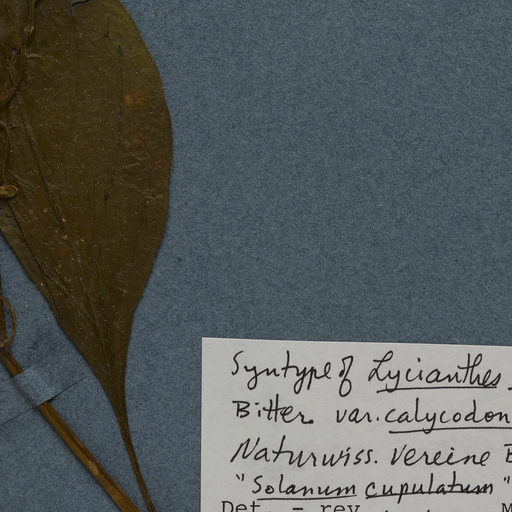 Syntype of Lycianthes
Bitter. var. calycodon
Naturwiss. Vereine
"Solanum cupulatum"
Det. – rev.